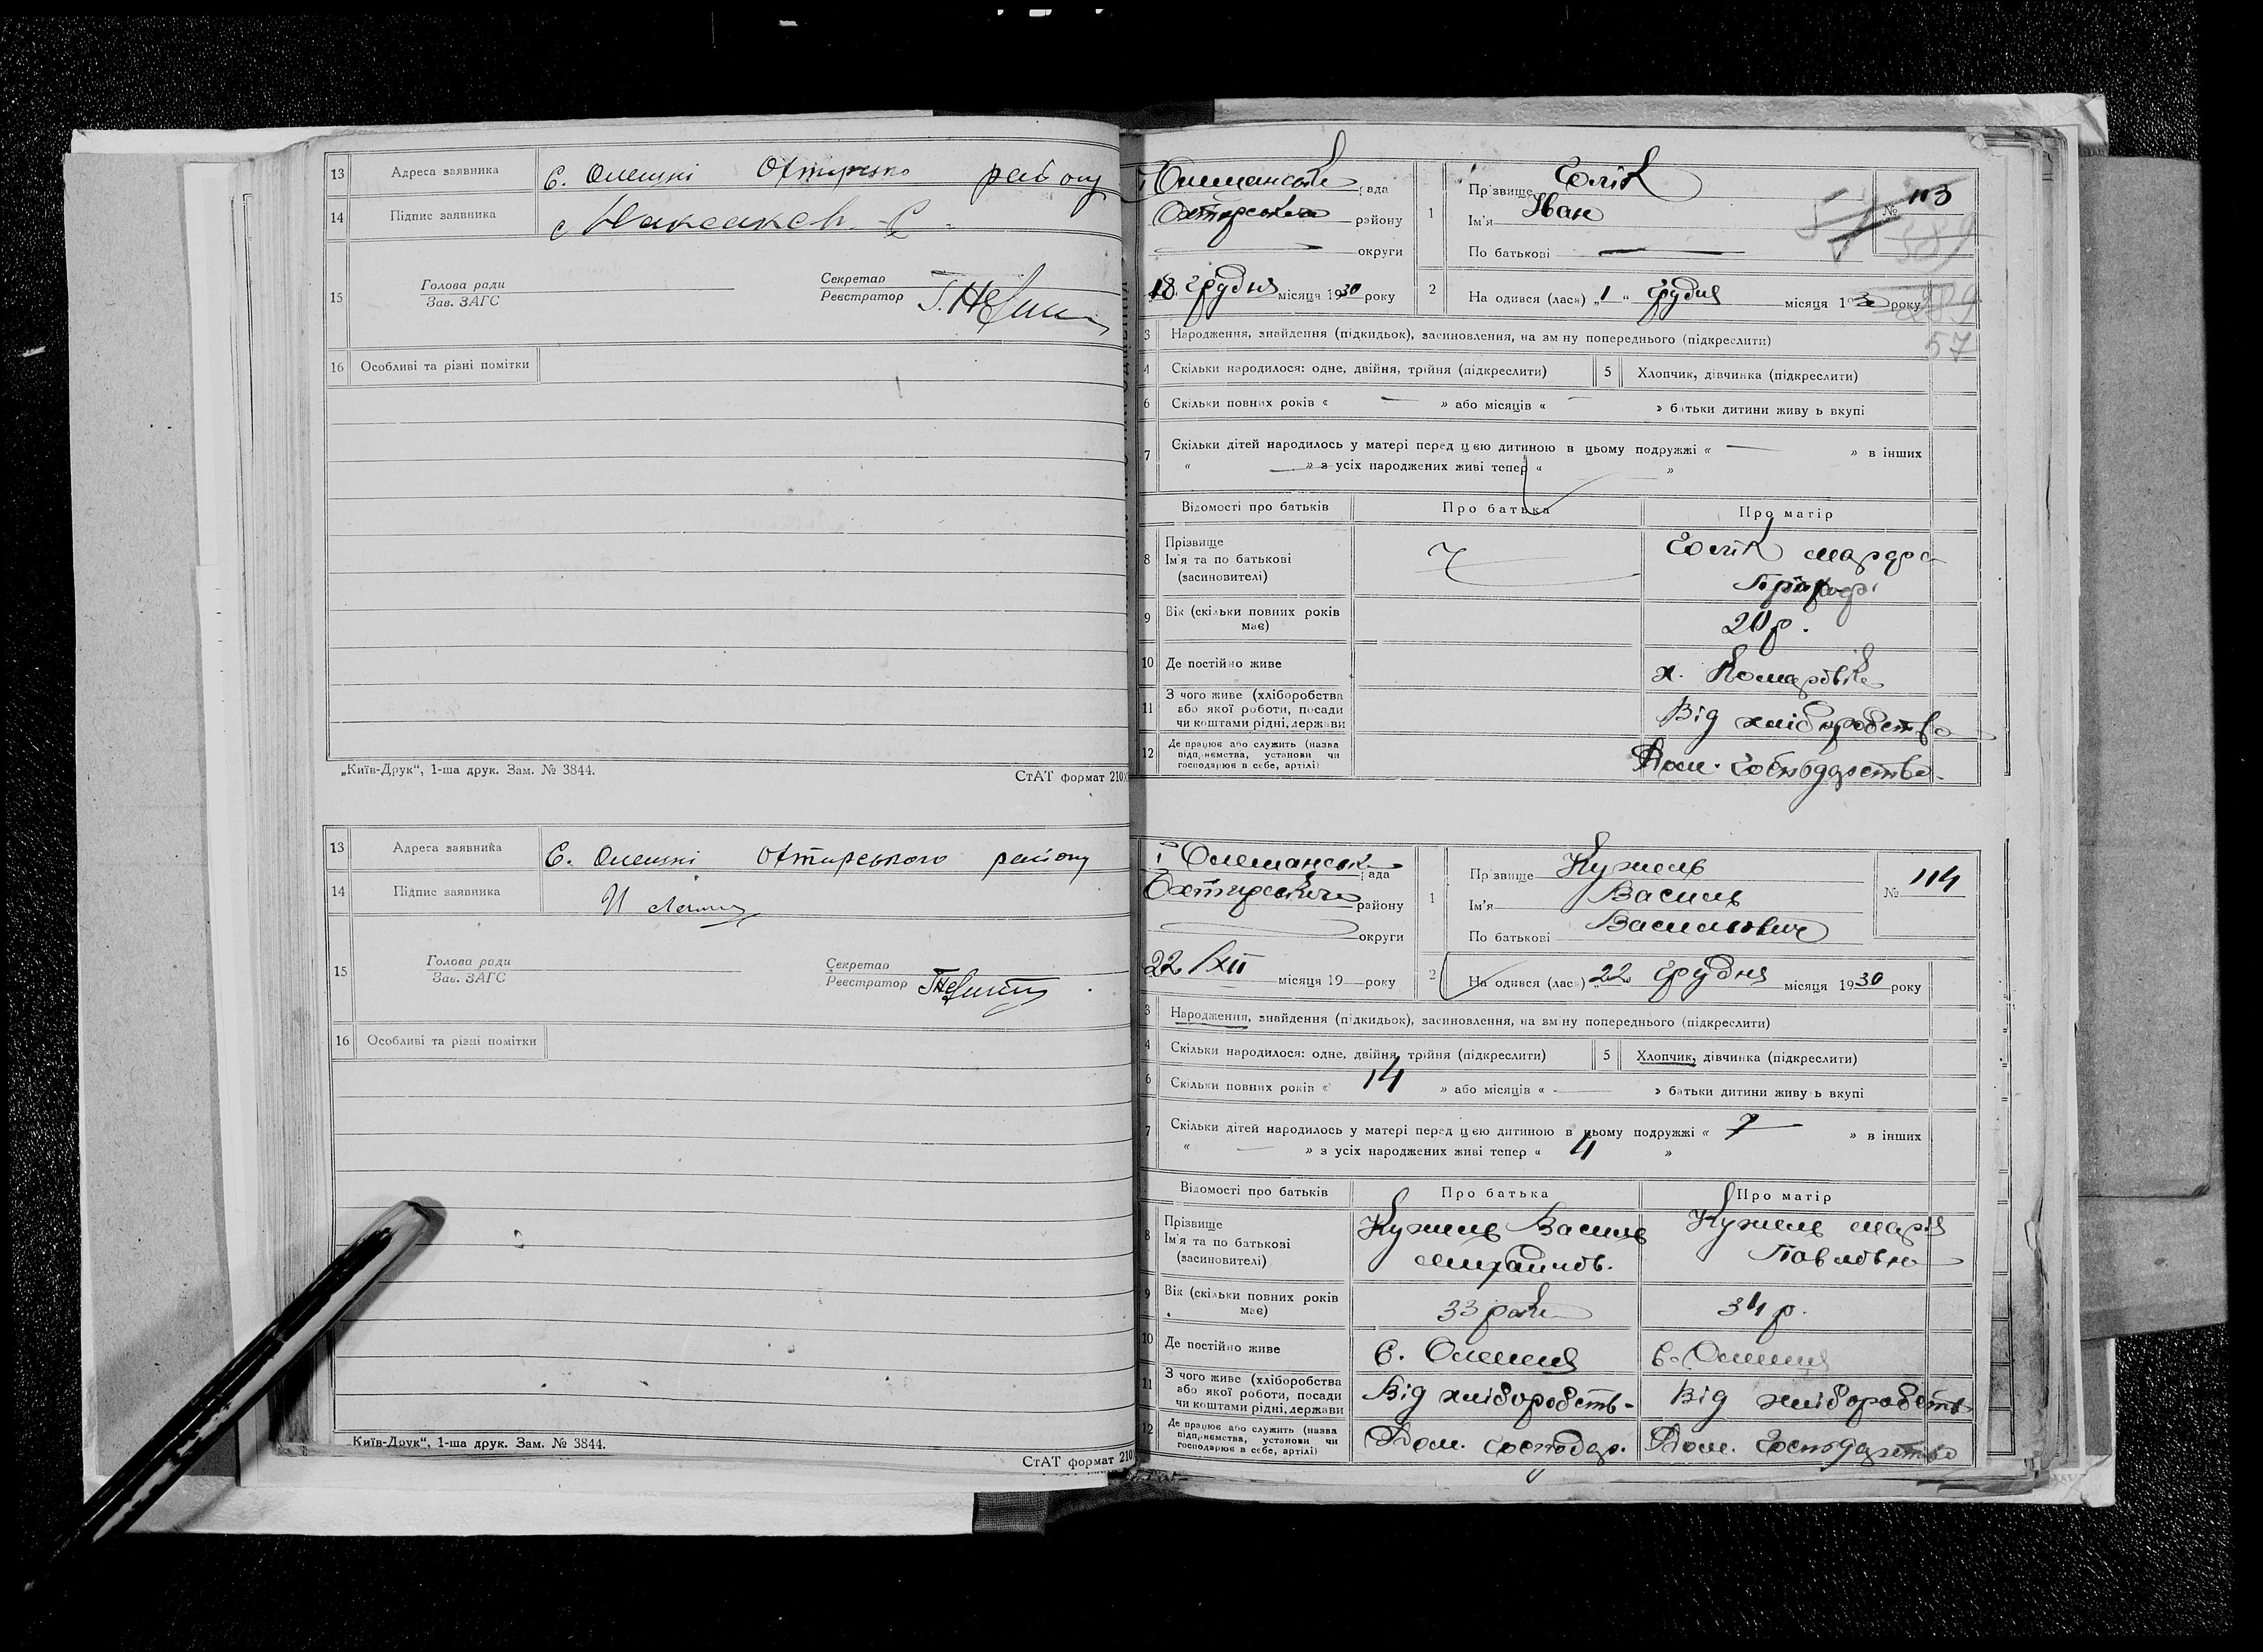 13 Адреса заявника С. Олешні Охтирсько району
14 Підпис заявника
15 Голова ради Секретар
Зав. ЗАГС Реєстратор
16 Особливі та різні помітки
„Київ-Друк“, 1-ша друк. Зам. № 3844. СтАТ формат 210
13 Адреса заявника С. Олешні Охтирського району
14 Підпис заявника
15 Голова ради Секретар
Зав. ЗАГС Реєстратор
16 Особливі та різні помітки
„Київ-Друк“, 1-ша друк. Зам. № 3844.
СтАТ формат 210
Олешанська рада
Охтирського району
округи
18 грудня місяця 1930 року
1 Прізвище
Ім'я Іван
По батькові —
№ 113
589
57
2 На одився (лась) „1“ Грудня місяця 193 року
3 Народження, знайдення (підкидьок), засиновлення, на зм ну попереднього (підкреслити)
4 Скільки народилося: одне, двійня, трійня (підкреслити) 5 Хлопчик, дівчинка (підкреслити)
6 Скільки повних років « — » або місяців « — » батьки дитини живу ь вкупі
7 Скільки дітей народилось у матері перед цією дитиною в цьому подружжі « — » в інших
« — » з усіх народжених живі тепер « — »
Відомості про батьків Про батька Про матір
8 Прізвище
Ім'я та по батькові
(засиновителі)
9 Вік (скільки повних років має) 20 р.
10 Де постійно живе х. Комарівка
11 З чого живе (хліборобства або якої роботи, посади чи коштами рідні, держави Від хліборобства
12 Де працює або служить (назва підприємства, установи чи господарює в себе, артілі) Дом. Господарство.
Олешанськ рада
Охтирського району
округи
22/XII місяця 19 року
1 Прізвище Кужель
Ім'я Василь
По батькові Васильович
№ 114
2 На одився (лась) „22 Грудня місяця 1930 року
3 Народження, знайдення (підкидьок), засиновлення, на зм ну попереднього (підкреслити)
4 Скільки народилося: одне, двійня, трійня (підкреслити) 5 Хлопчик, дівчинка (підкреслити)
6 Скільки повних років « 14 » або місяців « — » батьки дитини живу ь вкупі
7 Скільки дітей народилось у матері перед цією дитиною в цьому подружжі « 7 » в інших
« — » з усіх народжених живі тепер « 4 »
Відомості про батьків Про батька Про матір
8 Прізвище Кужель Василь Кужель Марія
Ім'я та по батькові Михайлов. Павловна
(засиновителі)
9 Вік (скільки повних років має) 33 роки 34 р.
10 Де постійно живе С. Олешня С. Олешня
11 З чого живе (хліборобства або якої роботи, посади чи коштами рідні, держави Від хліборобств- Від хліборобств
12 Де працює або служить (назва підприємства, установи чи господарює в себе, артілі) Дом. господар. Дом. Господарство